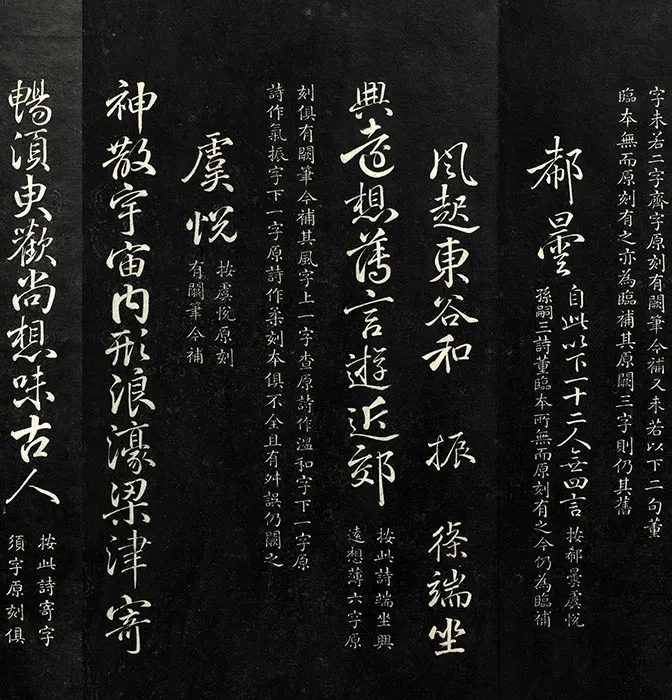 字未若二字齊字原刻有闕筆今補又未若以下二句董
臨本無而原刻有之亦為臨補其原闕三字則仍其舊
郗曇
自此以下一十二人無四言
按郗曇虞悅
孫嗣三詩董臨本所無而原刻有之今仍為臨補
風起東谷和 振 條端坐
興遠想薄言遊近郊
按此詩端坐興
遠想薄六字原
刻俱有闕筆今補其風字上一字查原詩作溫和字下一字原
詩作氣振字下一字原詩作柔刻本俱不全且有舛誤仍闕之
虞悅
按虞悅原刻
有闕筆今補
神散宇宙內形浪濠梁津寄
暢須臾歡尚想味古人
按此詩寄字
須字原刻俱